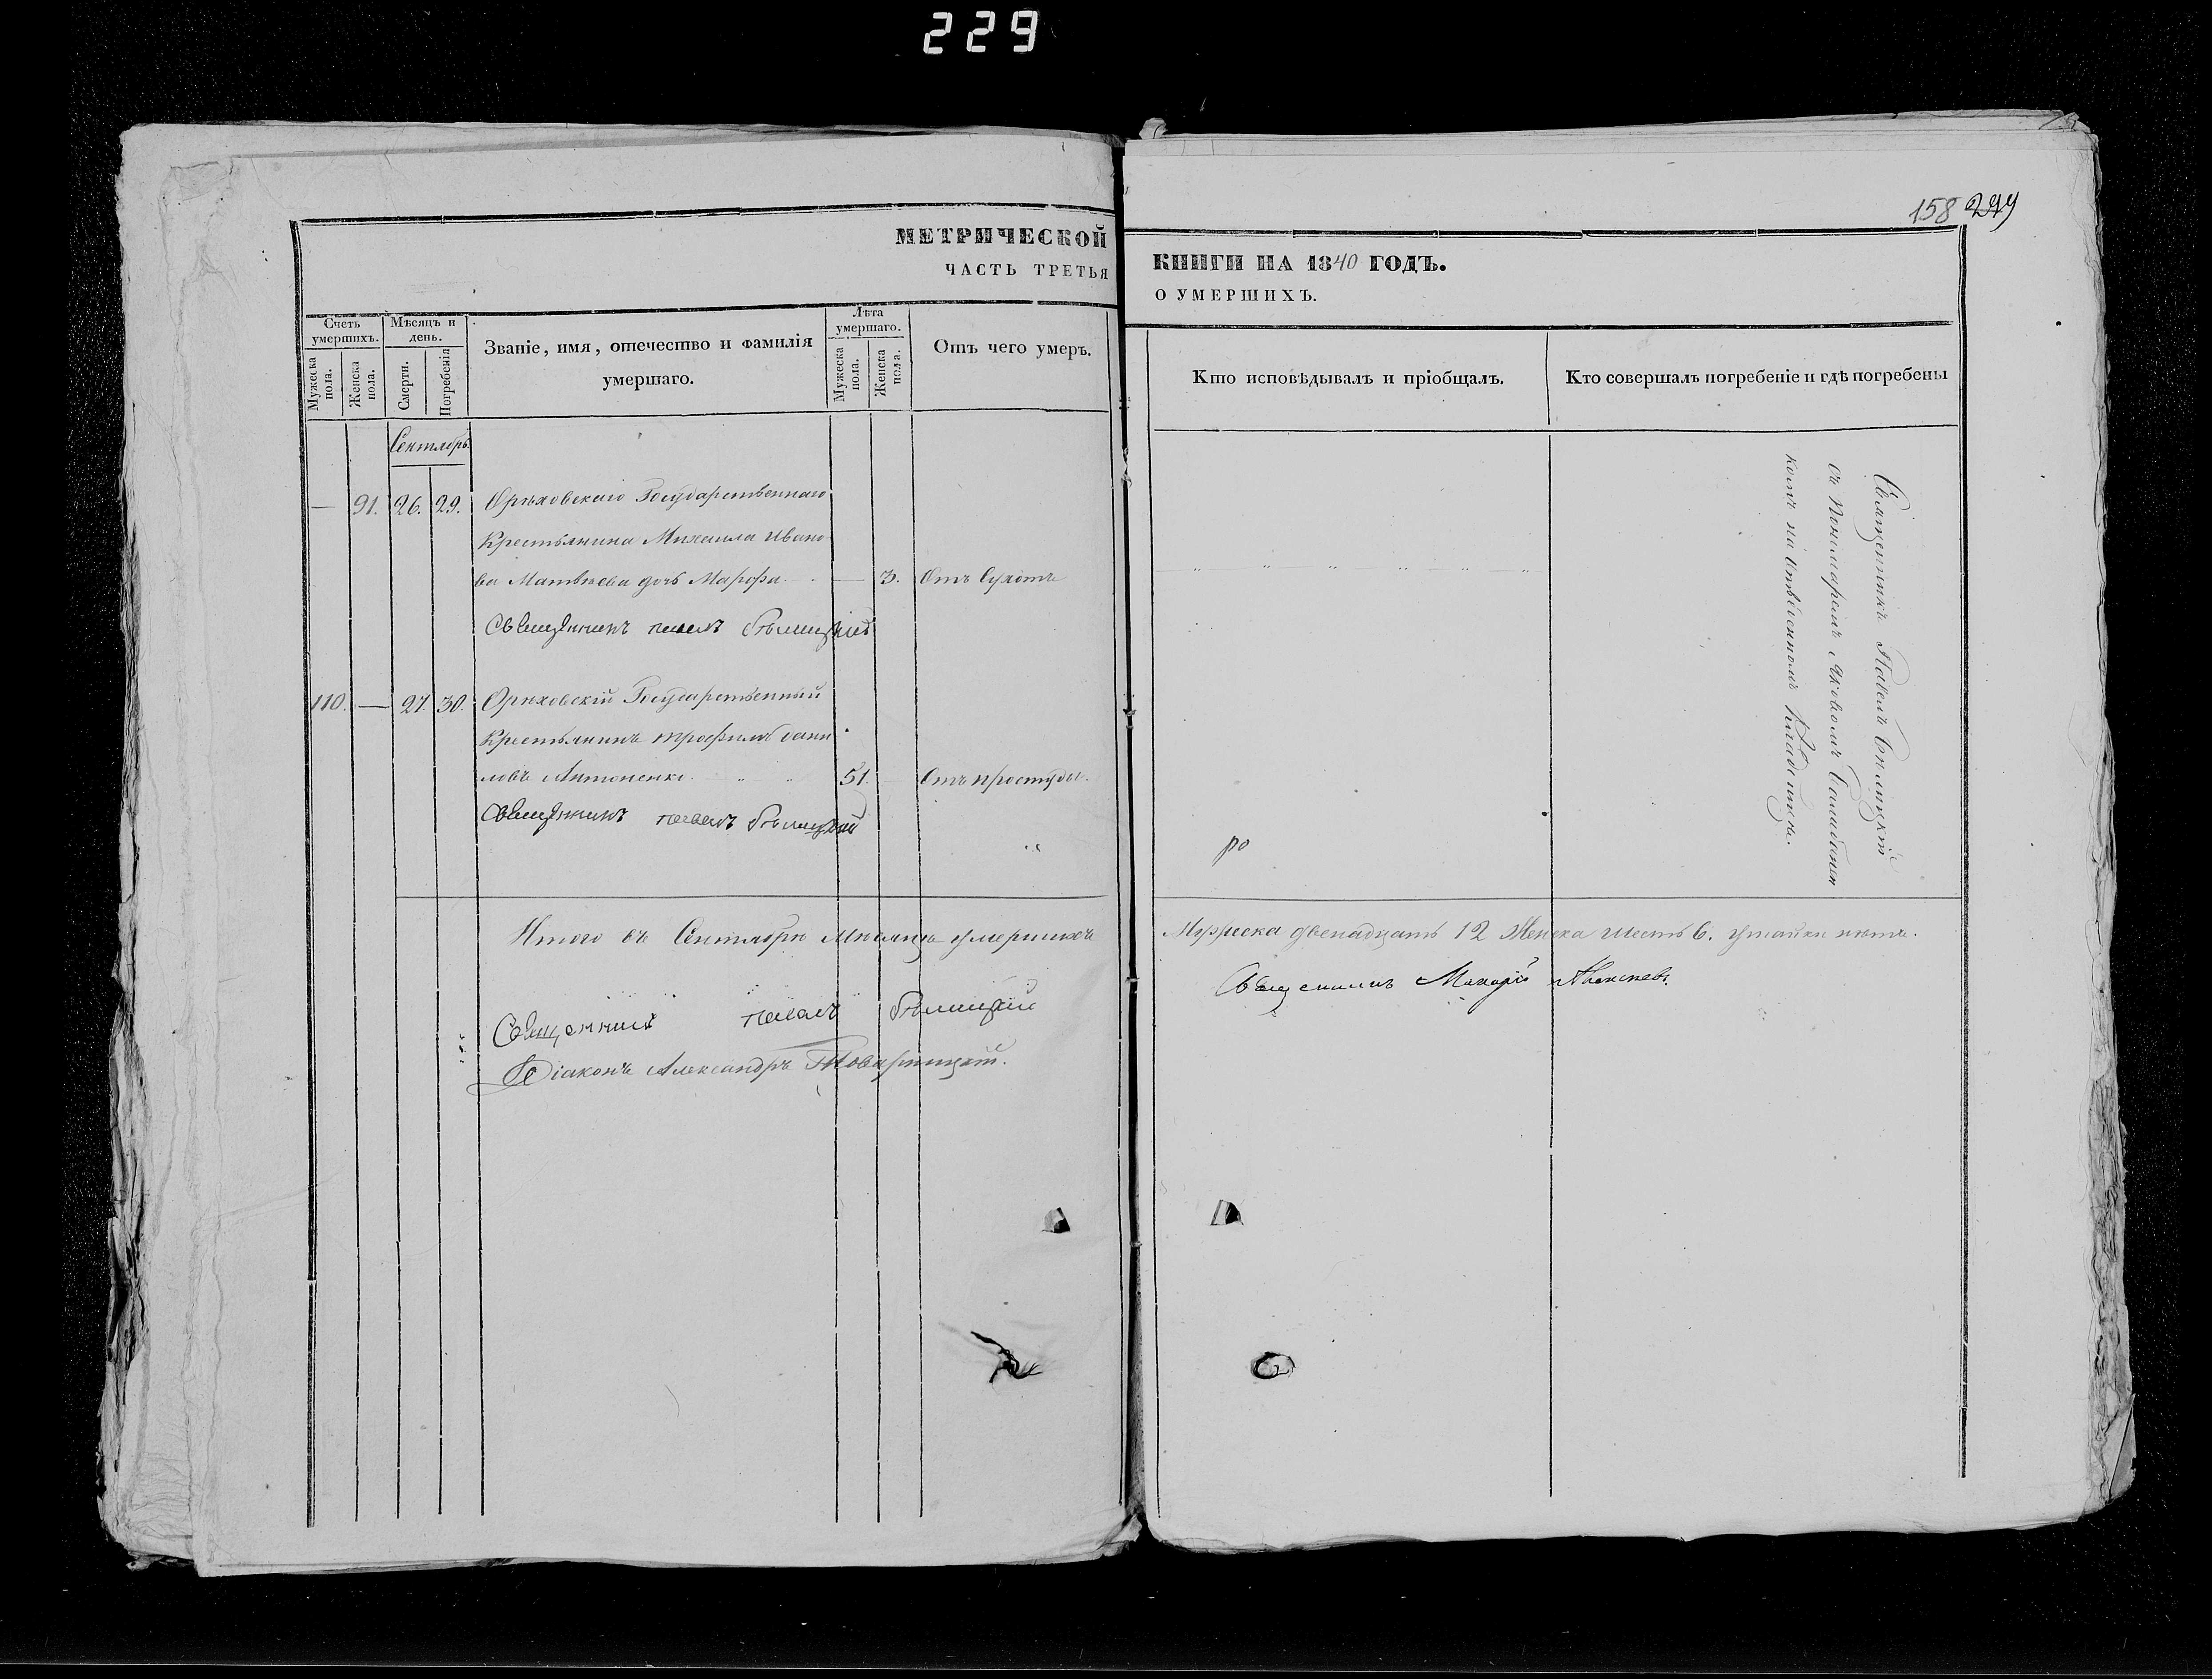 229
158 299
МЕТРИЧЕСКОЙ
ЧАСТЬ ТРЕТЬЯ
Счетъ умершихъ.
Мужеска пола.
Женска пола.
Мѣсяцъ и день.
Смерти.
Погребенія
Званіе, имя, отечество и фамилія
умершаго.
Лѣта умершаго.
Мужеска пола.
Женска пола.
Отъ чего умеръ.
Сентябрь
— 91. 26. 29. Орѣховскаго Государственнаго
Крестьянина Михаила Ивано
ва Матвѣева дочь Марѳа — 3. Отъ Сухотъ
Священникъ Павелъ Бѣлицкій
110. — 27. 30. Орѣховскій Государственный
Крестьянинъ Трофимъ Дани
ловъ Антоненко 51. Отъ простуды.
Священникъ Павелъ Бѣлицкій
Итого въ Сентябрѣ Мѣсяцѣ умершихъ
Священникъ Павелъ Бѣлицкій
Діаконъ Александръ Товарницкій.
КНИГИ НА 1840 ГОДЪ.
О УМЕРШИХЪ.
Кто исповѣдывалъ и пріобщалъ.
Кто совершалъ погребеніе и гдѣ погребены
Священникъ Павелъ Бѣлицкій
съ Пономаремъ Яковомъ
комъ на Кладбищѣ.
ро
Мужеска двенадцать 12 Женска шесть 6. утайки нѣтъ.
Священникъ Макарій Алексѣевъ.